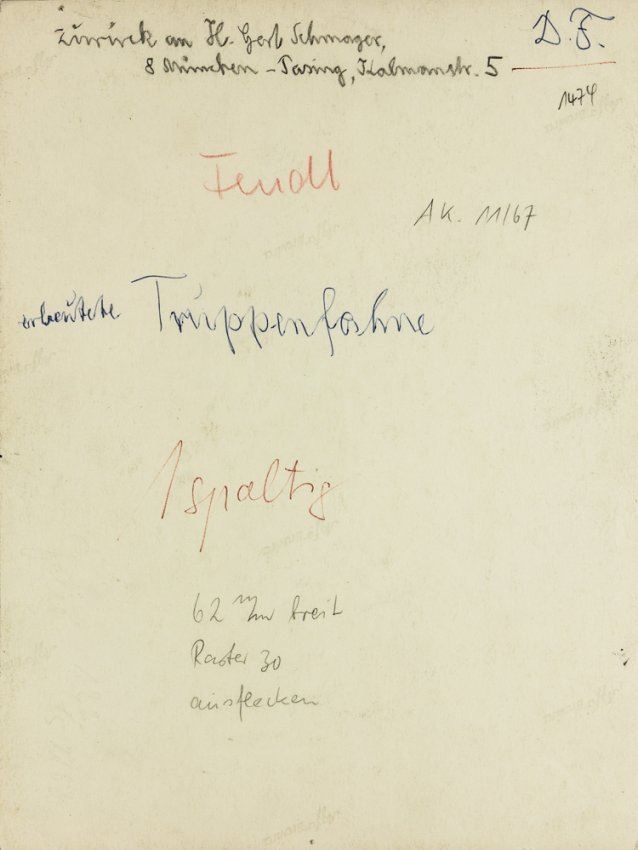 zurück an H. Gert Schmager,
8 München - Pasing, Kalmanstr. 5
D. F.
1474
Fendl
AK. 11/67
erbeutete Truppenfahne
1spaltig
62 m/m breit
Raster 30
ausflecken